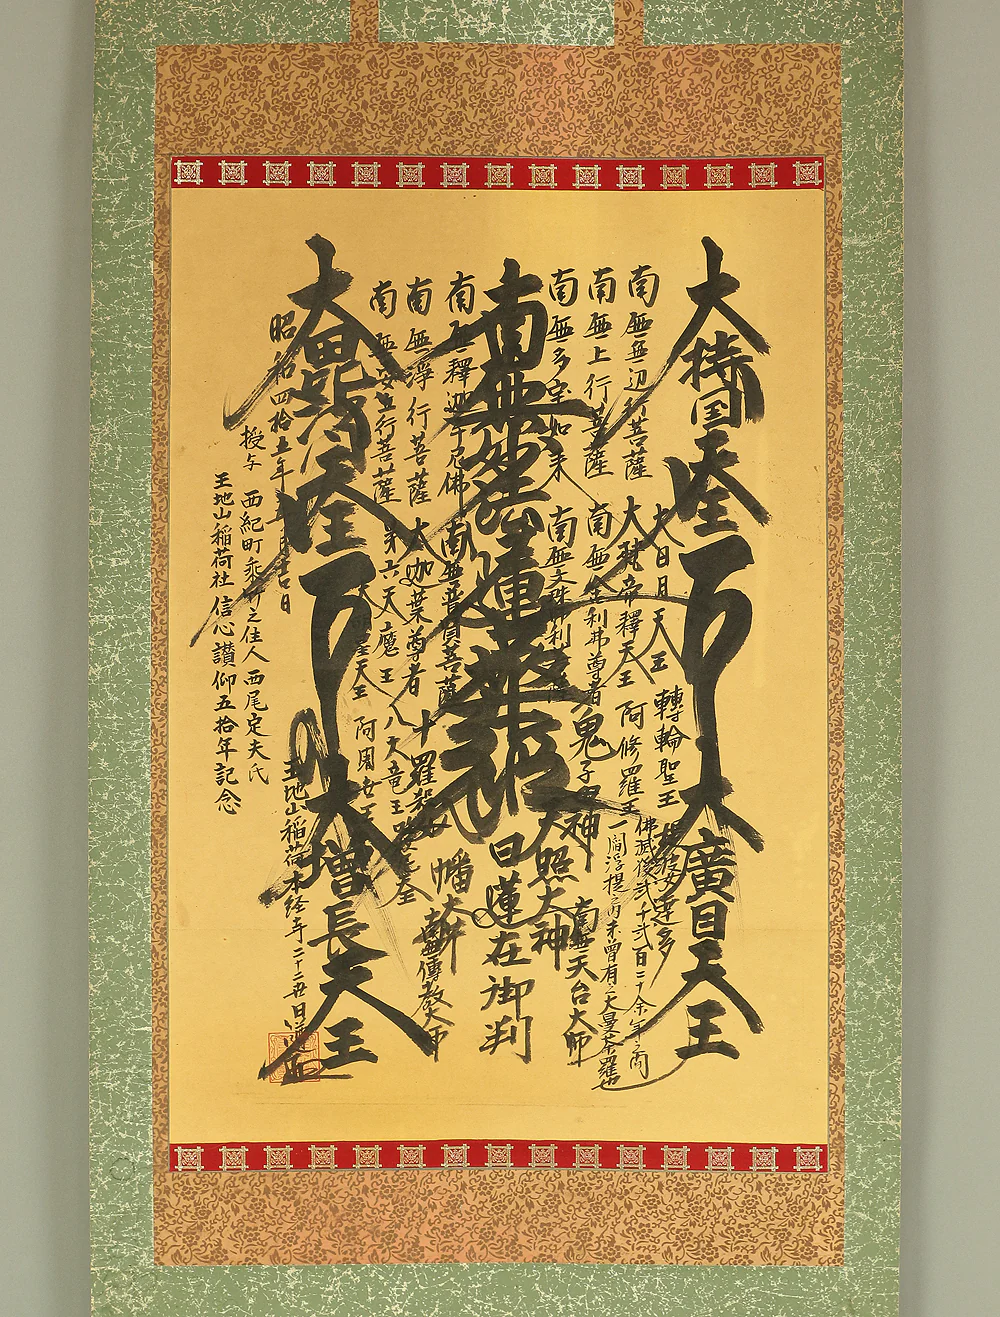 大持国天王
大廣目天王
南無無辺行菩薩
大日月天王
轉輪聖王
提婆達多
南無上行菩薩
大梵帝釋天王
阿修羅王
佛滅後弐千弐百二十余年之間
一閻浮提之内未曾有之大曼荼羅也
南無多宝如来
南無舎利弗尊者
鬼子母神
南無天台大師
南無文殊師利菩薩
天照大神
南無妙法蓮華経
日蓮在御判
南無釋迦牟尼佛
南無普賢菩薩
十羅刹女
八幡大菩薩
南無傳教大師
南無浄行菩薩
大迦葉尊者
八大竜王
南無安立行菩薩
第六天魔王
阿闍世王
大毘沙門天王
大増長天王
昭和四拾五年
授与
西紀町乘竹之住人 西尾定夫氏
王地山稲荷社 信心讃仰五拾年記念
王地山稲荷本経寺二十二丗日